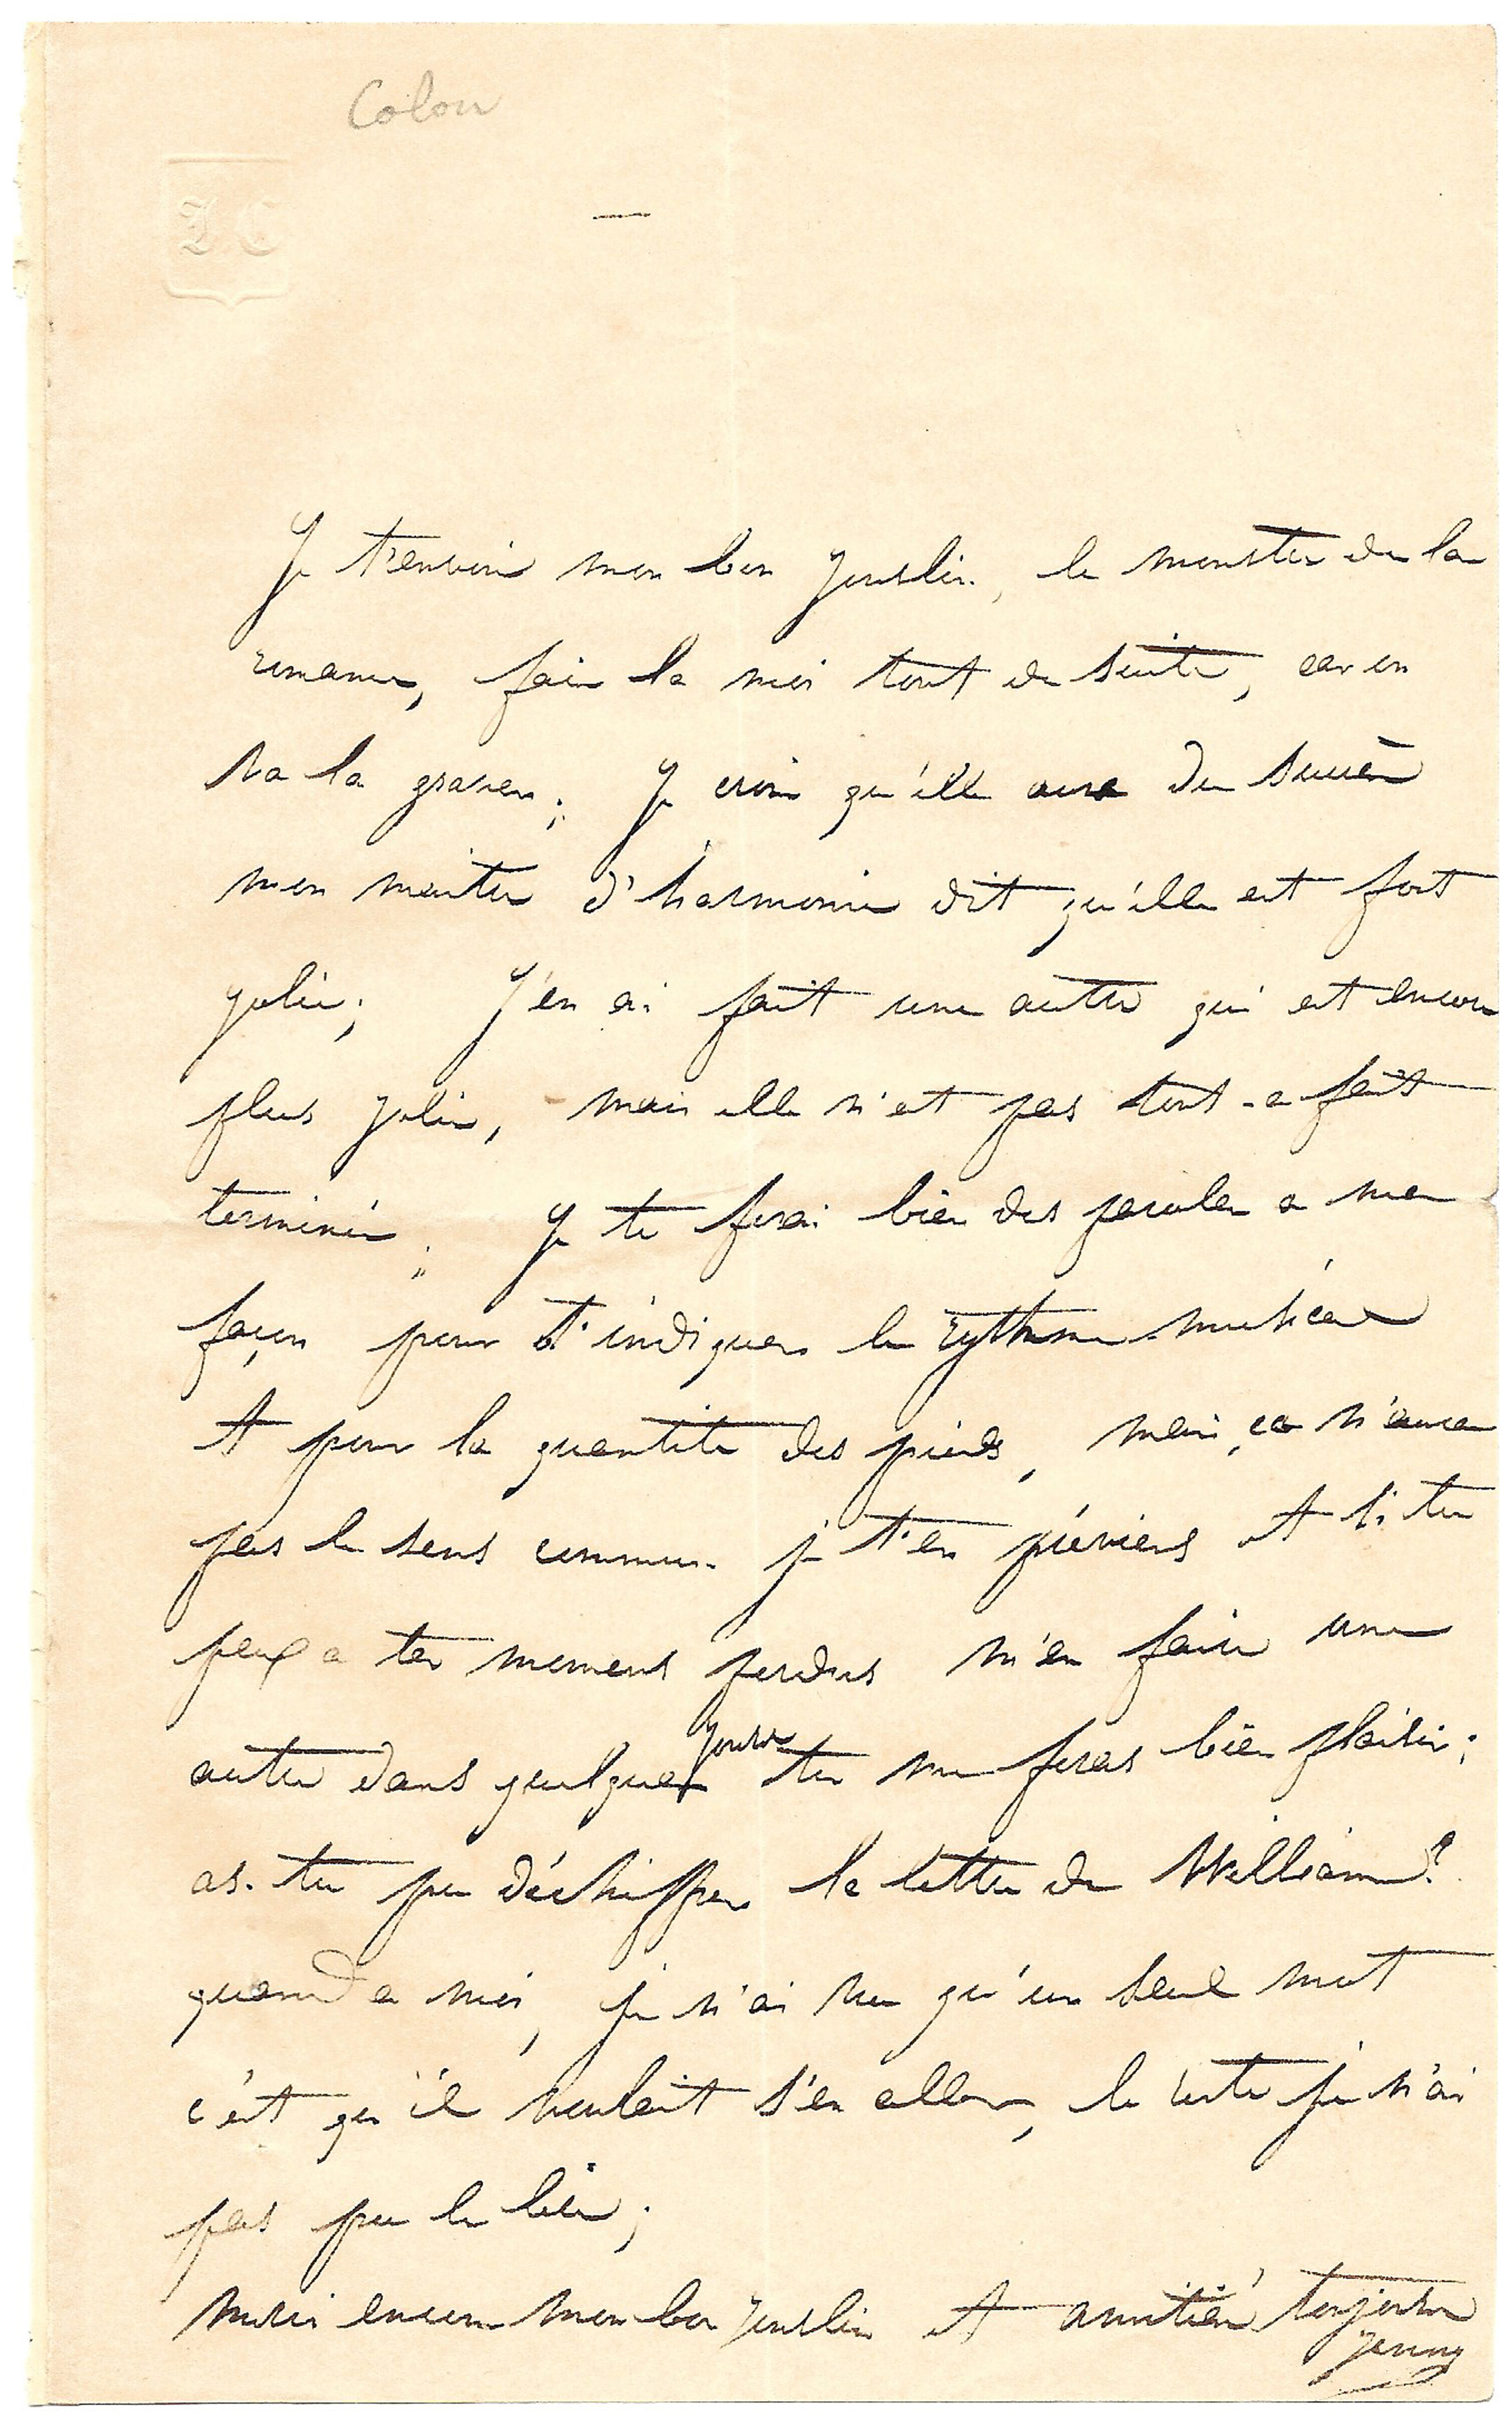 Colon
JC
Je t'envoie mon bon Jouslin, le monstre de la
romance, fais la moi tout de suite, car on
va la graver; Je crois qu'elle aura du succès
mon maitre d'harmonie dit qu'elle est fort
jolie; J'en ai fait une autre qui est encore
plus jolie, mais elle n'est pas tout-a fait
terminée; Je te ferai bien des paroles a ma
façon pour t'indiquer le rythme musical
et pour la quantité des pieds, mais ça n'aura
pas le sens commun je t'en préviens et si tu
peux a tes moments perdus m'en faire une
autre dans quelques jours tu me feras bien plaisir;
as-tu pu déchiffrer la lettre de William?
quand a moi, je n'ai vu qu'un seul mot
c'est qu'il voulait s'en aller, le reste je n'ai
pas pu le lire;
merci encore mon bon Jouslin et amitié toujours
Jenny